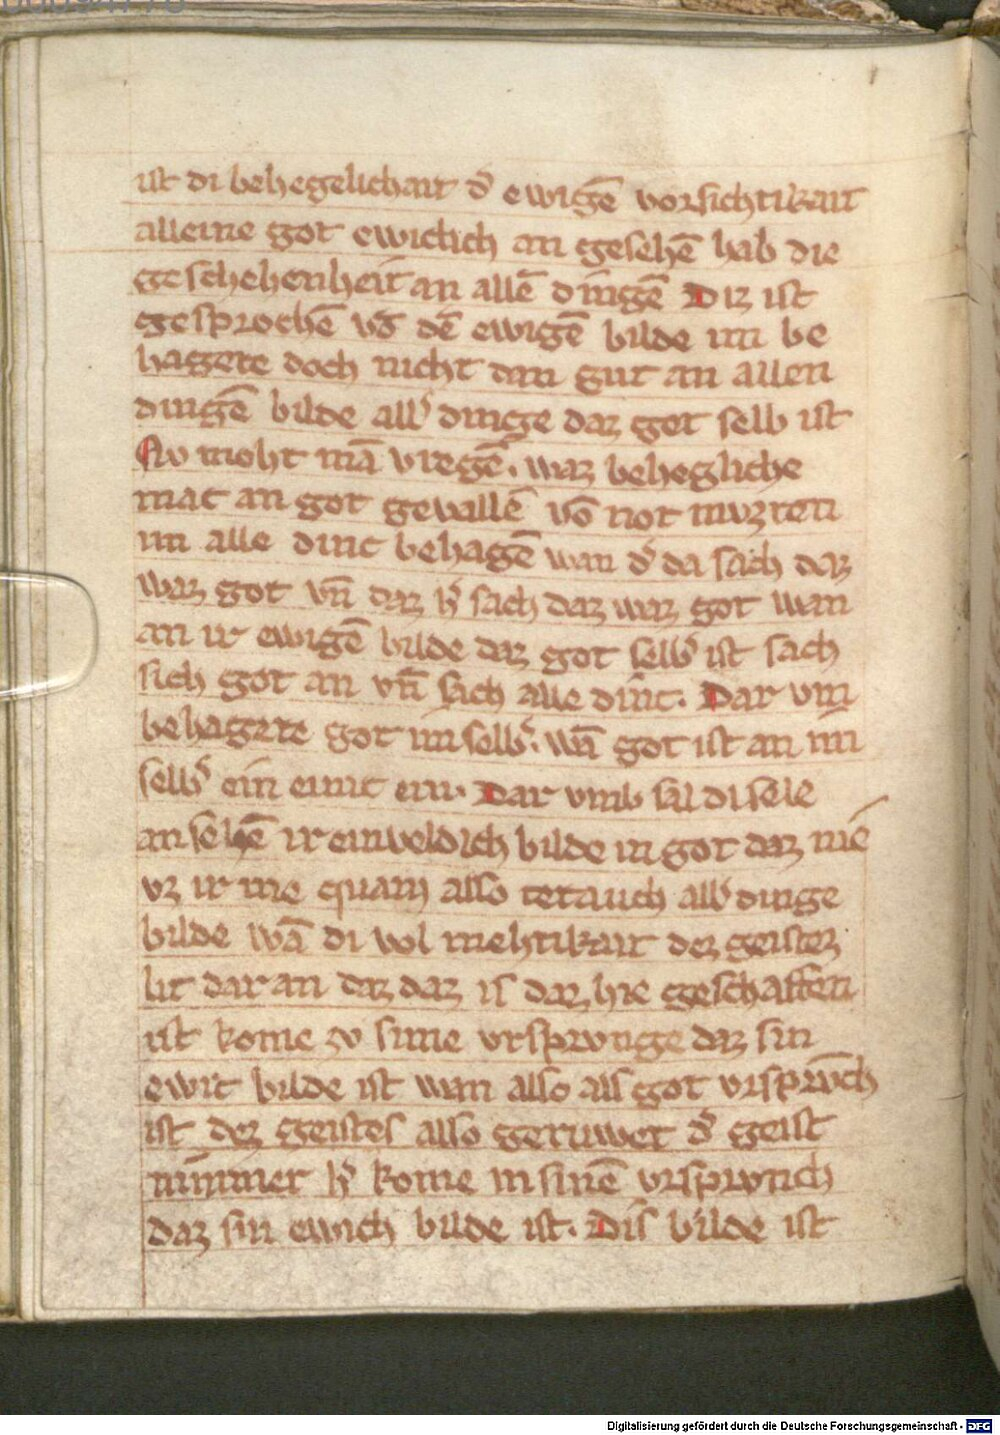 ist di behegelichait d̓ ewigē vorsichtikait
alleine got ewiclich an gesehē hab die
geschehenheit an allē dingē Diz ist
gesprochē vō dē ewigē bilde im be
hagete doch nicht dan gut an allen
dingē bilde all̓ dinge daz got selb ist
Nv moht mā vregē. waz behegliche
mac an got gevallē vō not muzten
im alle dinc behagē wan d̓ da sach daz
waz got vn̄ daz h̓ sach daz waz got wan
an ir ewigē bilde daz got selb̓ ist sach
sich got an vn̄ sach alle dinc. Dar vm
behagete got im selb̓. wā got ist an im
selb̓ ein einic ein. Dar vmb sal di sele
an sehē ir einveldich bilde in got daz nie
vz ir nie quam also tet auch all̓ dinge
bilde wā di vol mehtikait dez geistez
lit dar an daz daz is daz hie geschaffen
ist kome zv sime vrsprvnge daz sin
ewic bilde ist wan also als got vrsprūch
ist dez geistes also geruwet d̓ geist
nimmer h̓ kome in sinē vrsprvnch
daz sin ewich bilde ist. Dis bilde ist
Digitalisierung gefördert durch die Deutsche Forschungsgemeinschaft - DFG